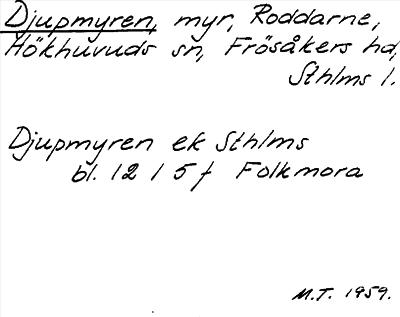 Djupmyren, myr, Roddarne,
Hökhuvuds sn, Frösåkers hd,
Sthlms l.
Djupmyren ek Sthlms
bl. 12 I 5 f Folkmora
M.T. 1959.